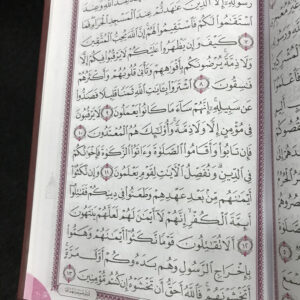 رسوله إلا الذين عاهدتم عند المسجد الحرام فما
استقموا لكم فاستقيموا لهم إن الله يحب المتقين
٧ كيف وإن يظهروا عليكم لا يرقبوا فيكم إلا
ولا ذمة يرضونكم بأفواههم وتأبى قلوبهم وأكثرهم
فسقون ٨ اشتروا بآيت الله ثمنا قليلا فصدوا
عن سبيله إنهم ساء ما كانوا يعملون ٩ لا يرقبون
في مؤمن إلا ولا ذمة وأولئك هم المعتدون ١٠
فإن تابوا وأقاموا الصلوة وءاتوا الزكوة فإخونكم
في الدين ونفصل الآيت لقوم يعلمون ١١ وإن نكثوا
أيمنهم من بعد عهدهم وطعنوا في دينكم فقتلوا
أئمة الكفر إنهم لا أيمن لهم لعلهم ينتهون
١٢ ألا تقتلون قوما نكثوا أيمنهم وهموا
بإخراج الرسول وهم بدءوكم أول مرة
أتخشونهم فالله أحق أن تخشوه إن كنتم مؤمنين ١٣